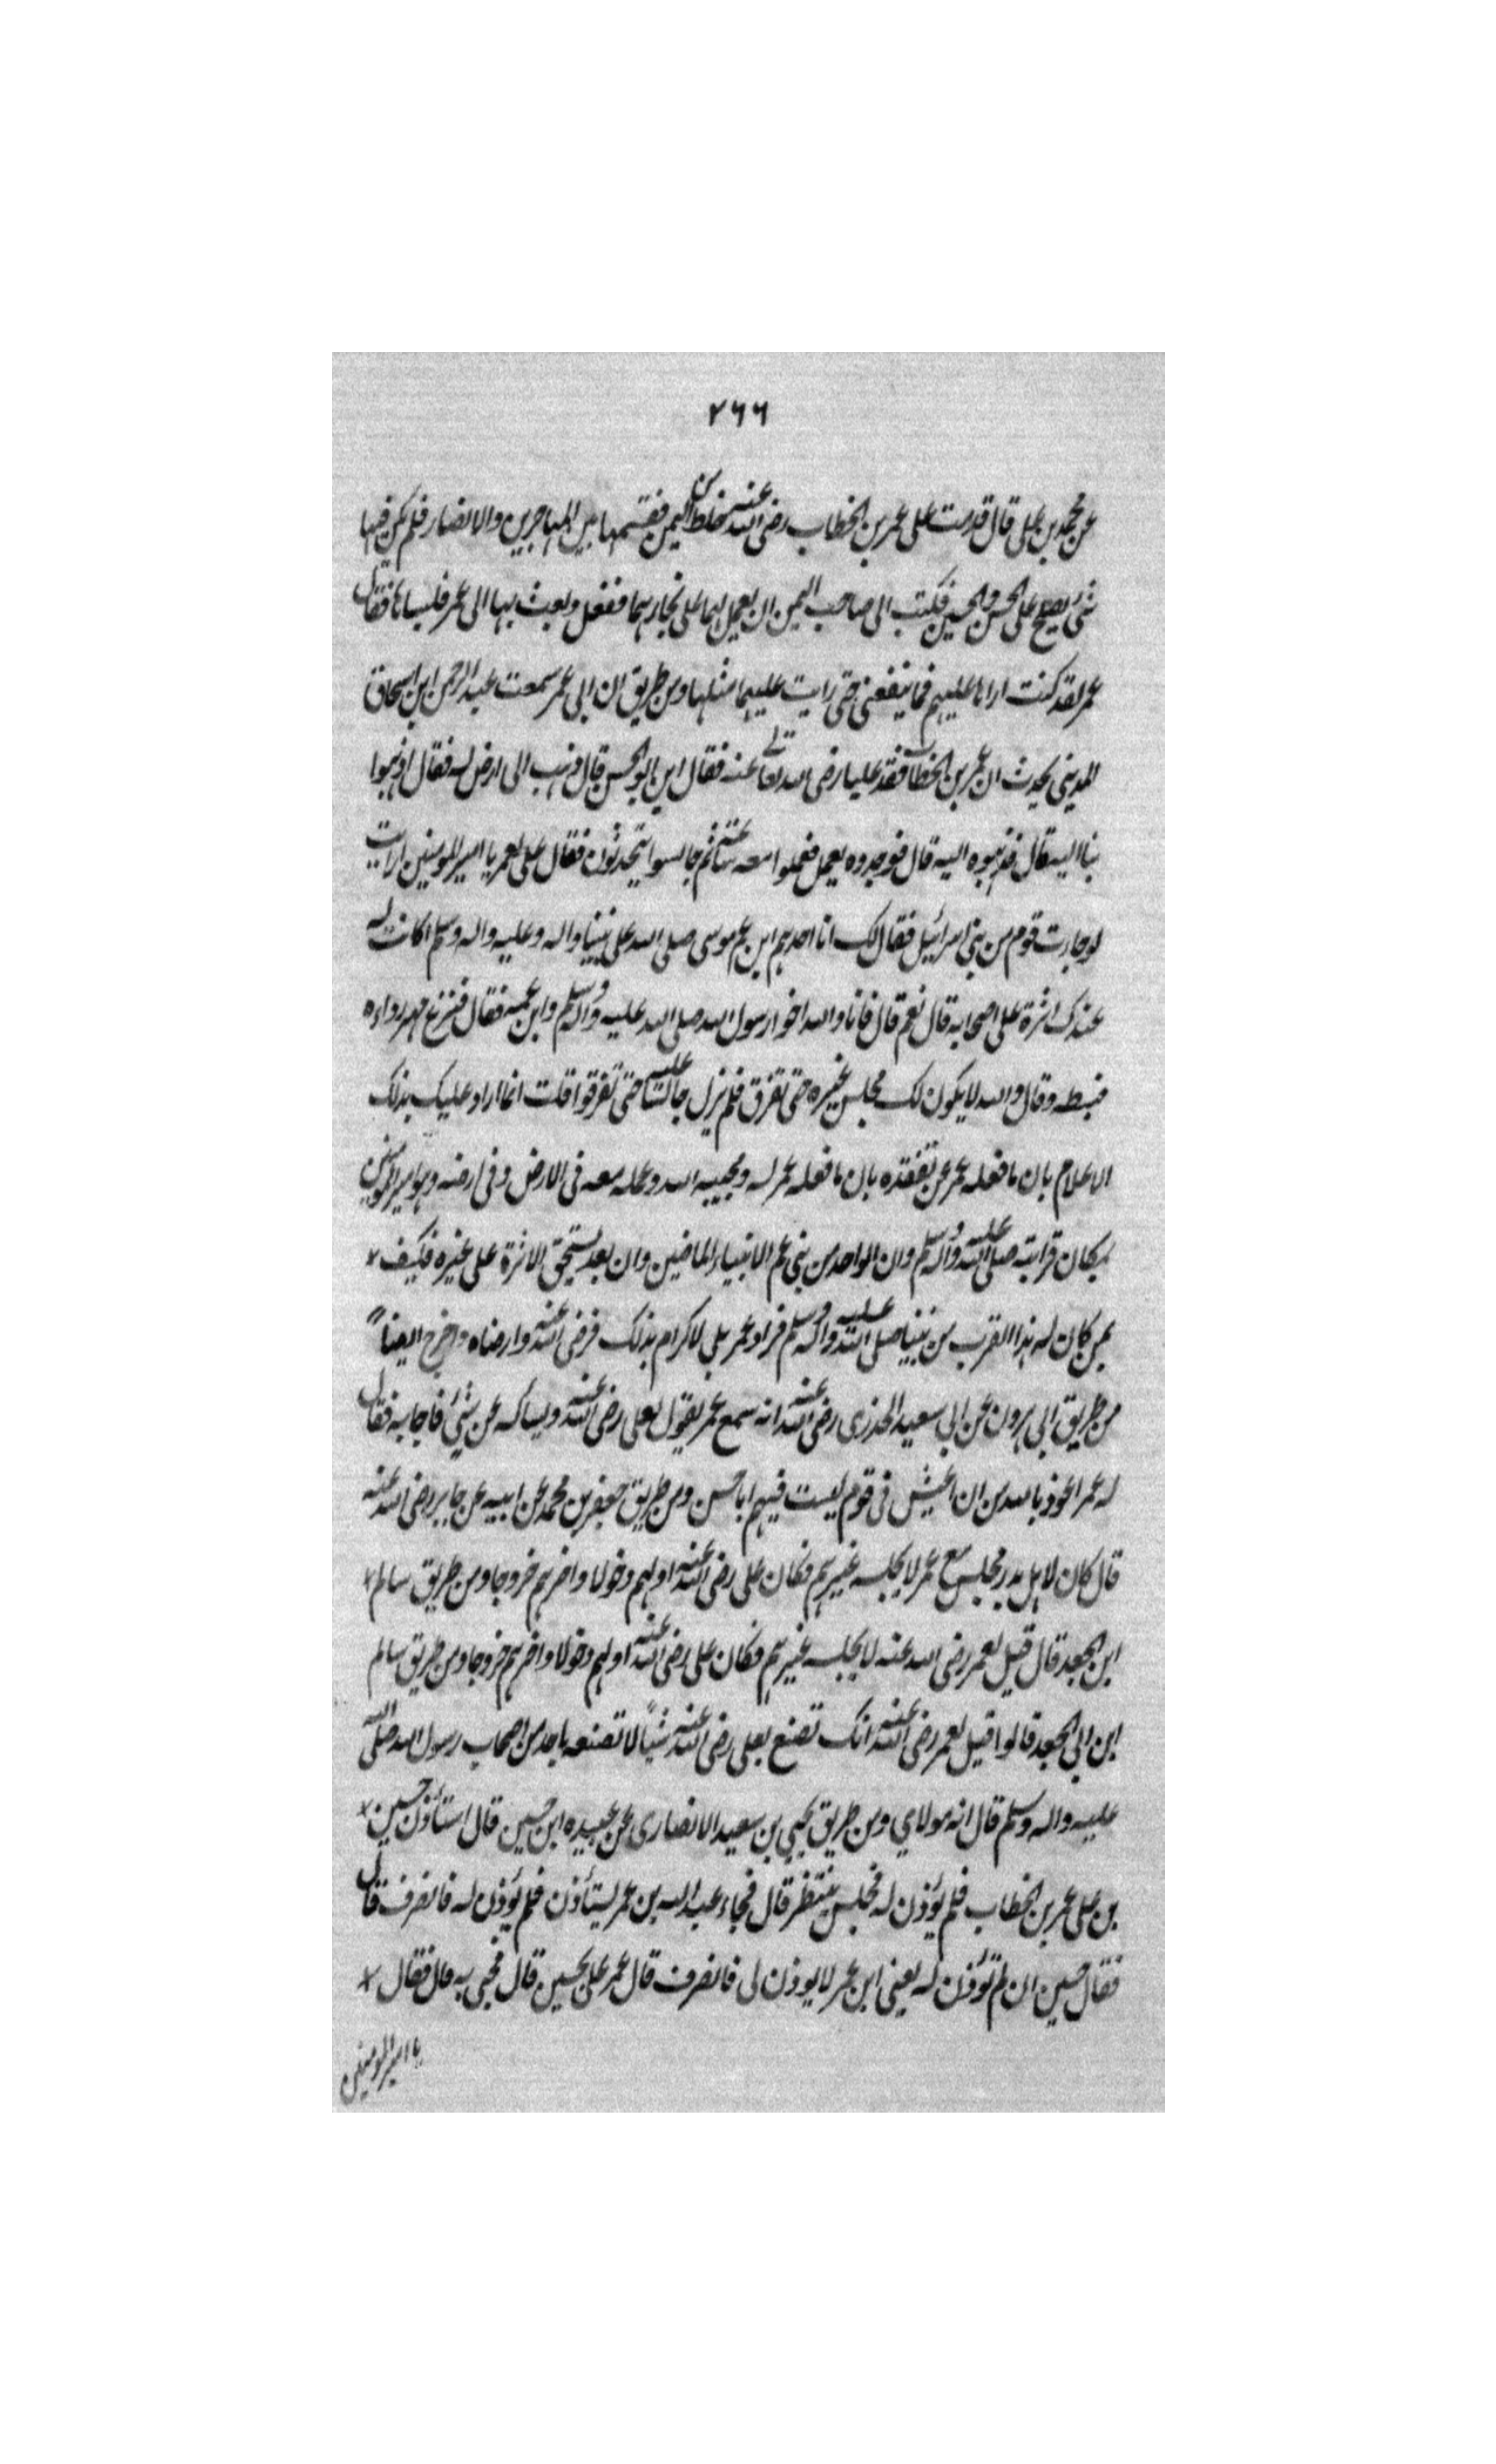 ٢٦٦
عن محمد بن على قال قدمت على عمر بن الخطاب رضى الله عنه حلل من اليمن فقسمها بين المهاجرين والانصار فلم يكن فيها
شئ يصلح على الحسن والحسين فكتب الى صاحب اليمن ان يعمل لهما على نجارهما ففعل وبعث بها الى عمر فلبساها فقال
عمر لقد كنت اراها عليهم فما ينفعنى حتى رايت عليهما مثلها ومن طريق ابن ابى عمر سمعت عبد الرحمن ابن اسحاق
المدينى يحدث ان عمر بن الخطاب فقد عليا رضى الله تعالى عنه فقال اين ابو الحسن قال ذهب الى ارض له فقال اذهبوا
بنا اليه قال فذهبوا اليه قال فوجدوه يعمل فعملوا معه ساعة ثم جالسوا يتحدثون فقال على لعمر يا امير المومنين ارايت
لو جاءت قوم من بنى اسرائيل فقال لك انا احدهم ابن عم موسى صلى الله على نبينا واله وعليه واله وسلم اكانت له
عندك اثرة على اصحابه قال نعم قال فانا والله اخو رسول الله صلى الله عليه واله وسلم وابن عمه فقال فنزع عمر رداءه
فبسطه وقال والله لا يكون لك مجلس غيره حتى تفرق فلم يزل جالسا عليه حتى تفرقوا قلت انما اراد عليك بذلك
الاعلام بان ما فعله عمر من تفقده بان ما فعله عمر له ومجيه اليه وعمله معه فى الارض وفى ارضه وهو امير المومنين
بمكان قرابته صلى الله عليه واله وسلم وان الواحد من بنى عم الانبياء الماضين وان بعد يستحق الاثرة على غيره فكيف
بمن كان له هذا القرب من نبينا صلى الله عليه واله وسلم فزاد عمر على الاكرام بذلك فرضى الله عنه وارضاه واخرج ايضاً
من طريق ابى هرون عن ابى سعيد الخدرى رضى الله عنه انه سمع عمر يقول لعلى رضى الله عنه ويساله عن شئ فاجابه فقال
له عمر اعوذ بالله من ان اعيش فى قوم ليست فيهم ابا حسن ومن طريق جعفر بن محمد عن ابيه عن جابر رضى الله عنه
قال كان لاهل بدر مجلس مع عمر لا يجلسه غيرهم فكان على رضى الله عنه اولهم دخولا واخرهم خروجا ومن طريق سالم
ابن الجعد قال قيل لعمر رضى الله عنه لا يجلسه غيرهم فكان على رضى الله عنه اولهم دخولا واخرهم خروجا ومن طريق سالم
ابن ابى الجعد قالوا قيل لعمر رضى الله عنه انك تصنع بعلى رضى الله عنه شيئاً لا تصنعه باحد من اصحاب رسول الله صلى الله
عليه واله وسلم قال انه مولاي ومن طريق يحيى بن سعيد الانصارى عن عبيده ابن حسين قال استأذن حسين
بن على عمر بن الخطاب فلم يؤذن له فجلس ينتظر قال فجاء عبد الله بن عمر ليستأذن فلم يؤذن له فانصرف قال
فقال حسين ان لم تؤذن له يعنى ابن عمر لا يوذن لى فانصرف قال عمر على بحسين قال فجئ به قال فقال
يا امير المومنين